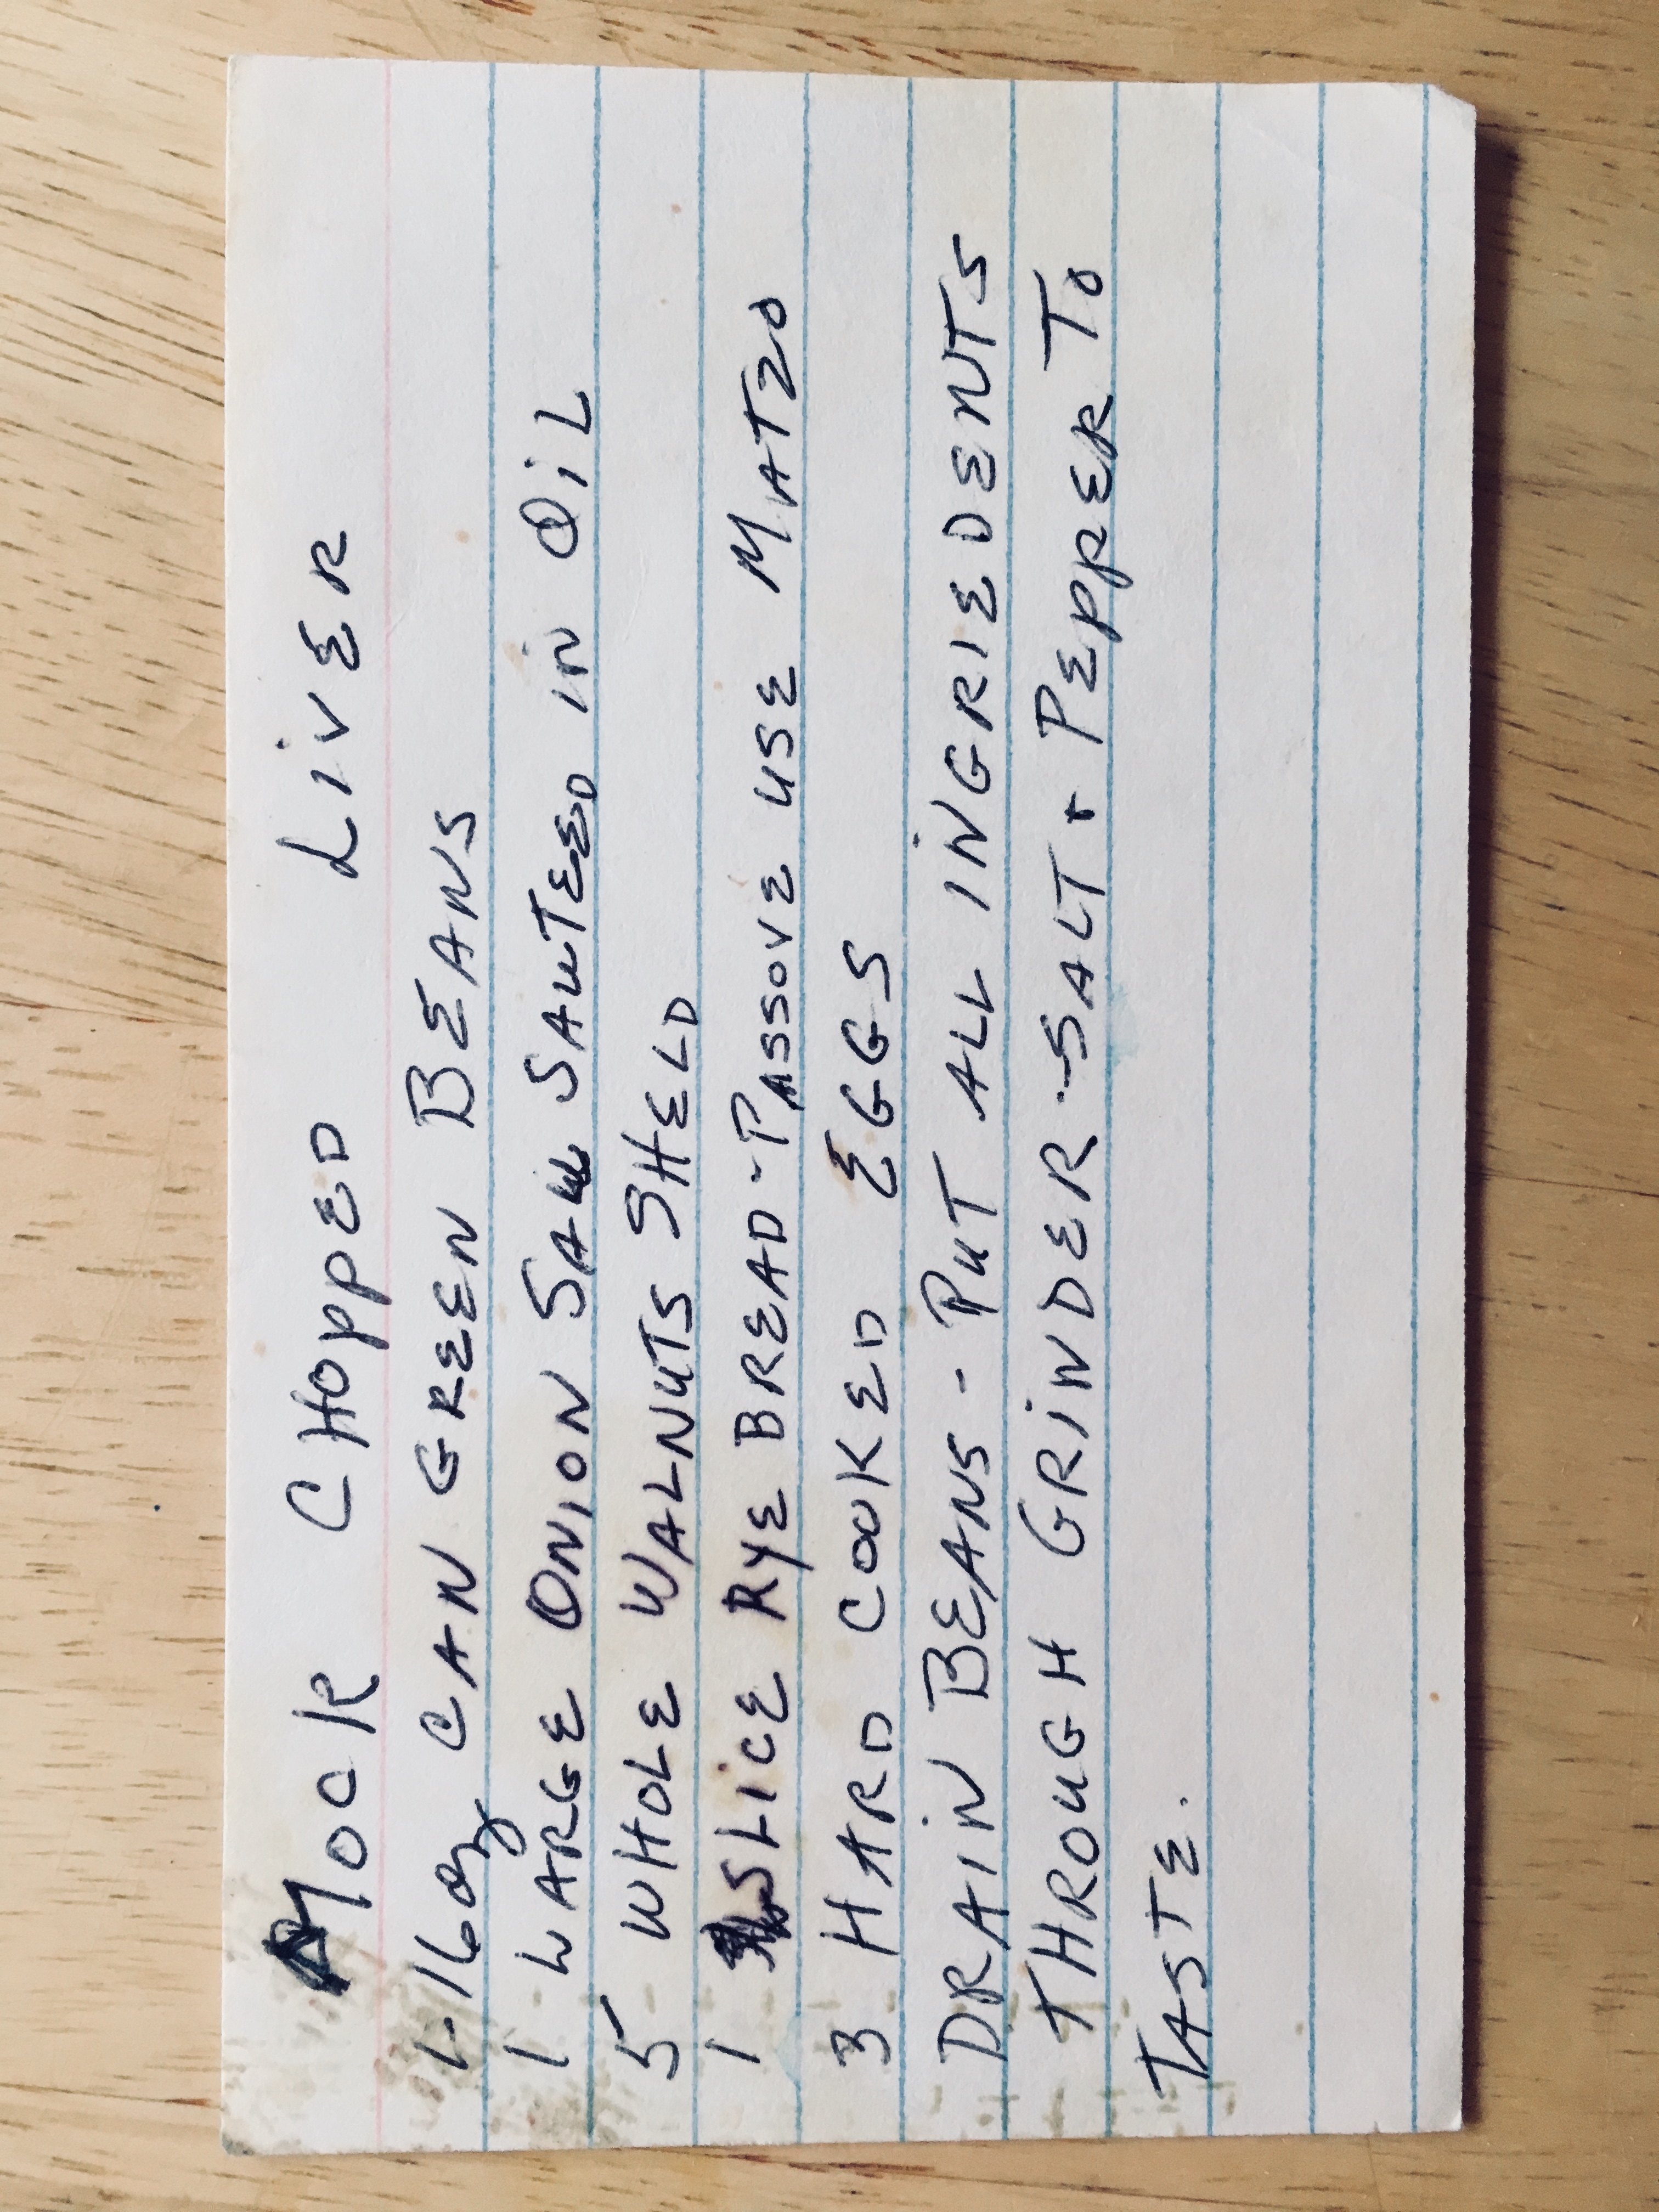 Mock CHOPPED LiVER
1-16oz CAN GREEN BEANS
1 LARGE ONION SAUTEED IN OIL
5 WHOLE WALNUTS SHELD
1 SLICE RYE BREAD-PASSOVE USE MATZO
3 HARD COOKED EGGS
DRAIN BEANS - PUT ALL INGRIEDENTS
THROUGH GRINDER-SALT + PEPPER TO
TASTE.